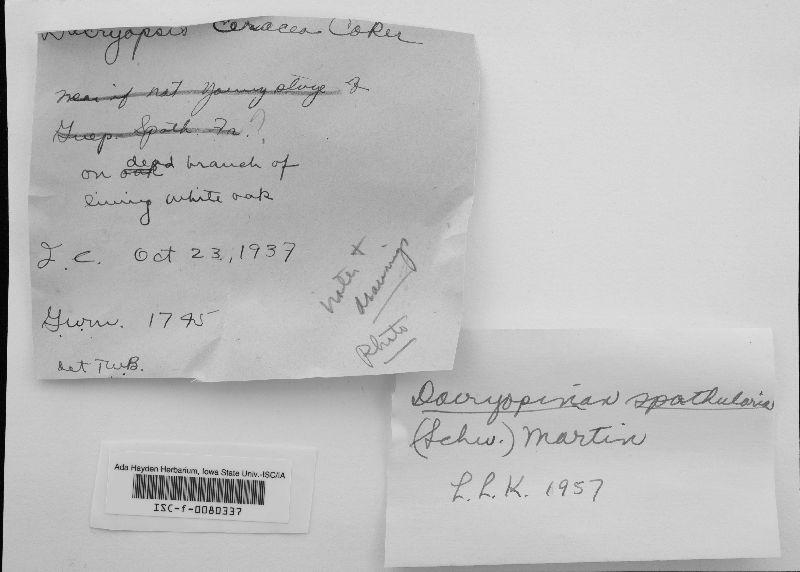 Dacryopsis ceracea Coker
near if not young stage of
Guep. Spath. Fr.?
on oak dead branch of
living white oak
I.C. Oct 23, 1937
G.W.M. 1745
det T.W.B.
notes +
drawings
photo
Dacryopinax spathularia
(Schw.) Martin
L.L.K. 1957
Ada Hayden Herbarium, Iowa State Univ.-ISC/IA
ISC-f-0080337